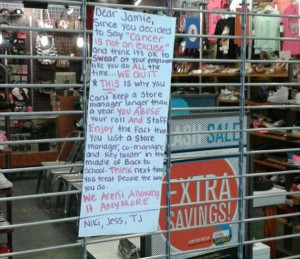 Dear Jamie,
Since you decided
to say "cancer
is not an excuse"
and think it's ok to
swear at your employees
like you do ALL the
time... WE QUIT
& THIS is why you
can't keep a store
manager longer than
a year. YOU ABUSE
your roll And staff
Enjoy the fact that
you lost a store
manager, co-manager
and key holder in the
middle of Back to
School. Think next time
you treat people the way
you do.
We Aren't Allowing
It ANYMORE
Niki, Jess, TJ
SALE
EXTRA
SAVINGS!